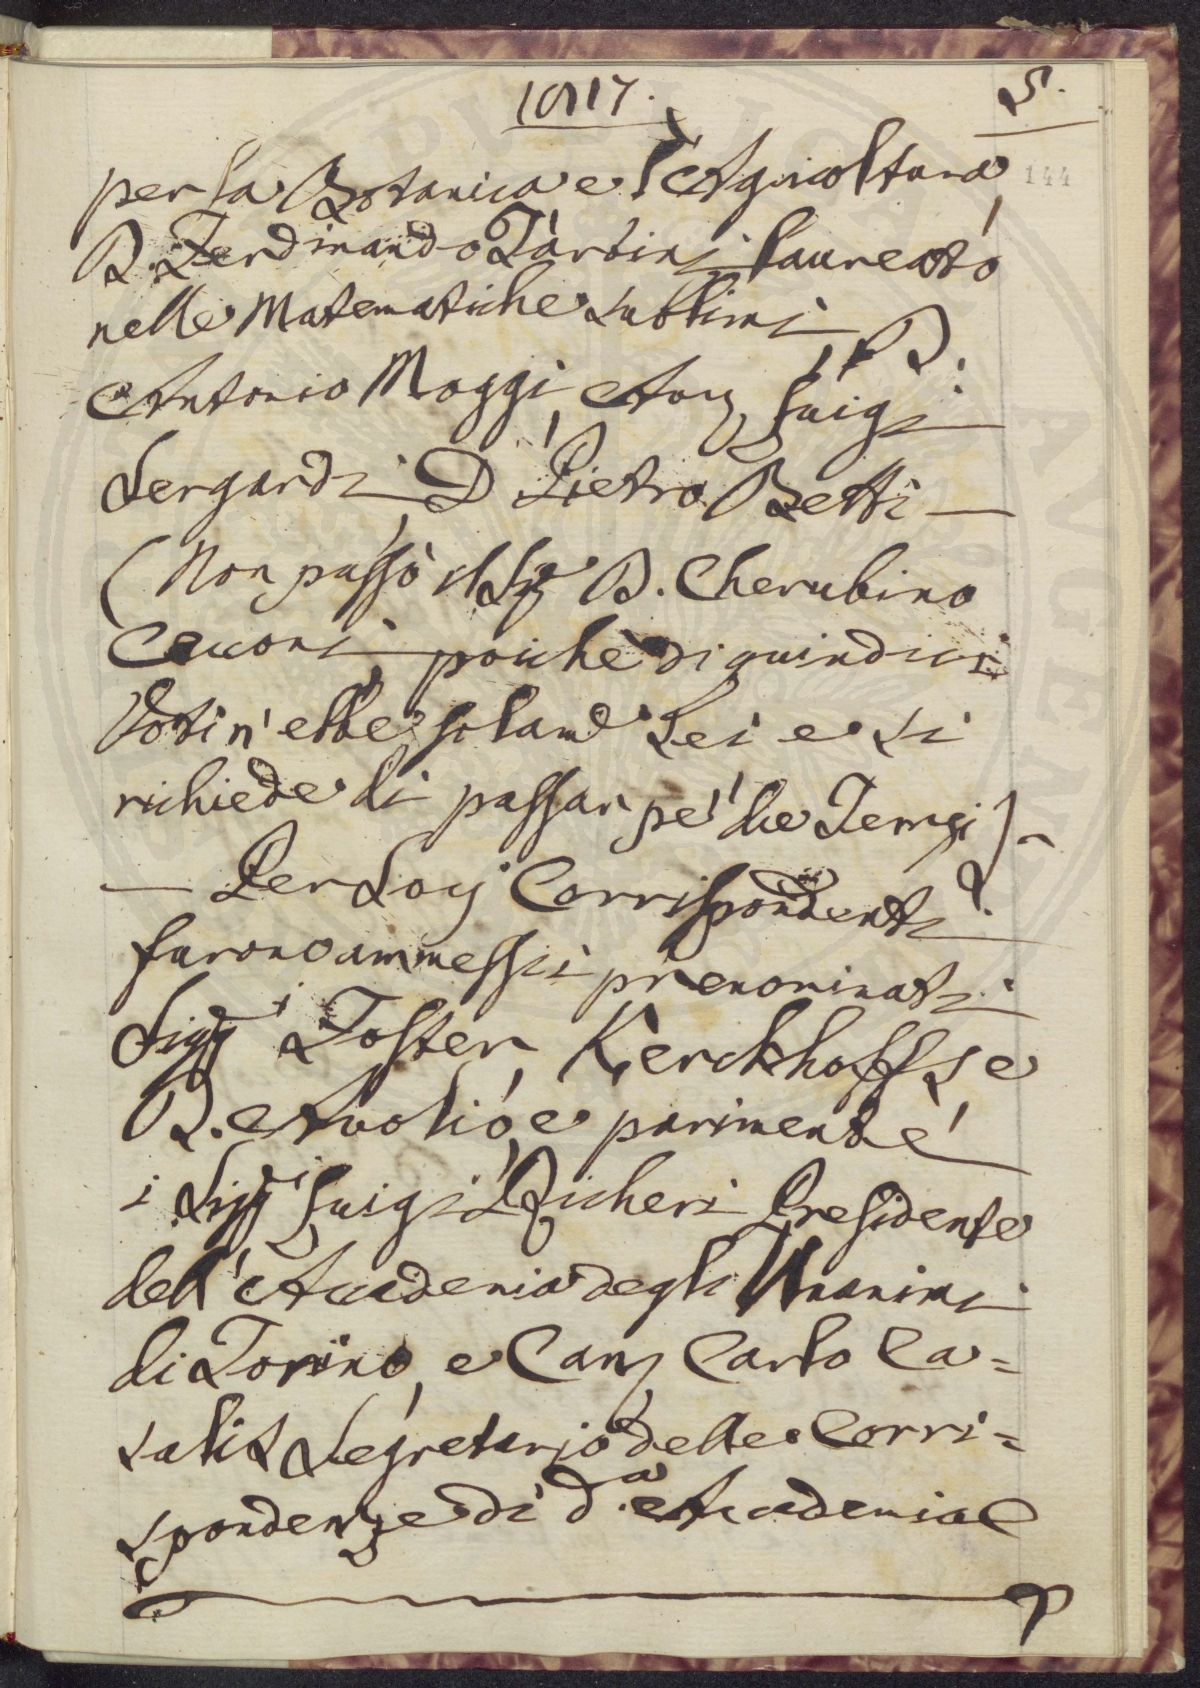 10117. 5.
144
per la Botanica e l'Agricoltura
D. Ferdinando Tartini laureato
nelle Matematiche sublimi, D.
Antonio Moggi, Luigi
Sergardi, D Pietro Betti —
(Non passò il Sig D. Cherubino
Cecconi, poichè di quindici
Voti n'ebbe solam.e Sei e si
richiede di passar pe' due Terzi)
— Per Socj Corrispondenti
furono ammessi i prenominati
Sigg.i Foster, Kerckhoffs e
D. Avolio, e parimente
i Sigg.i Luigi Richeri Presidente
dell'Accademia degli Unanimi
di Torino, e Can. Carlo Ca=
salis Segretario delle Corri=
spondenze di d.a Accademia